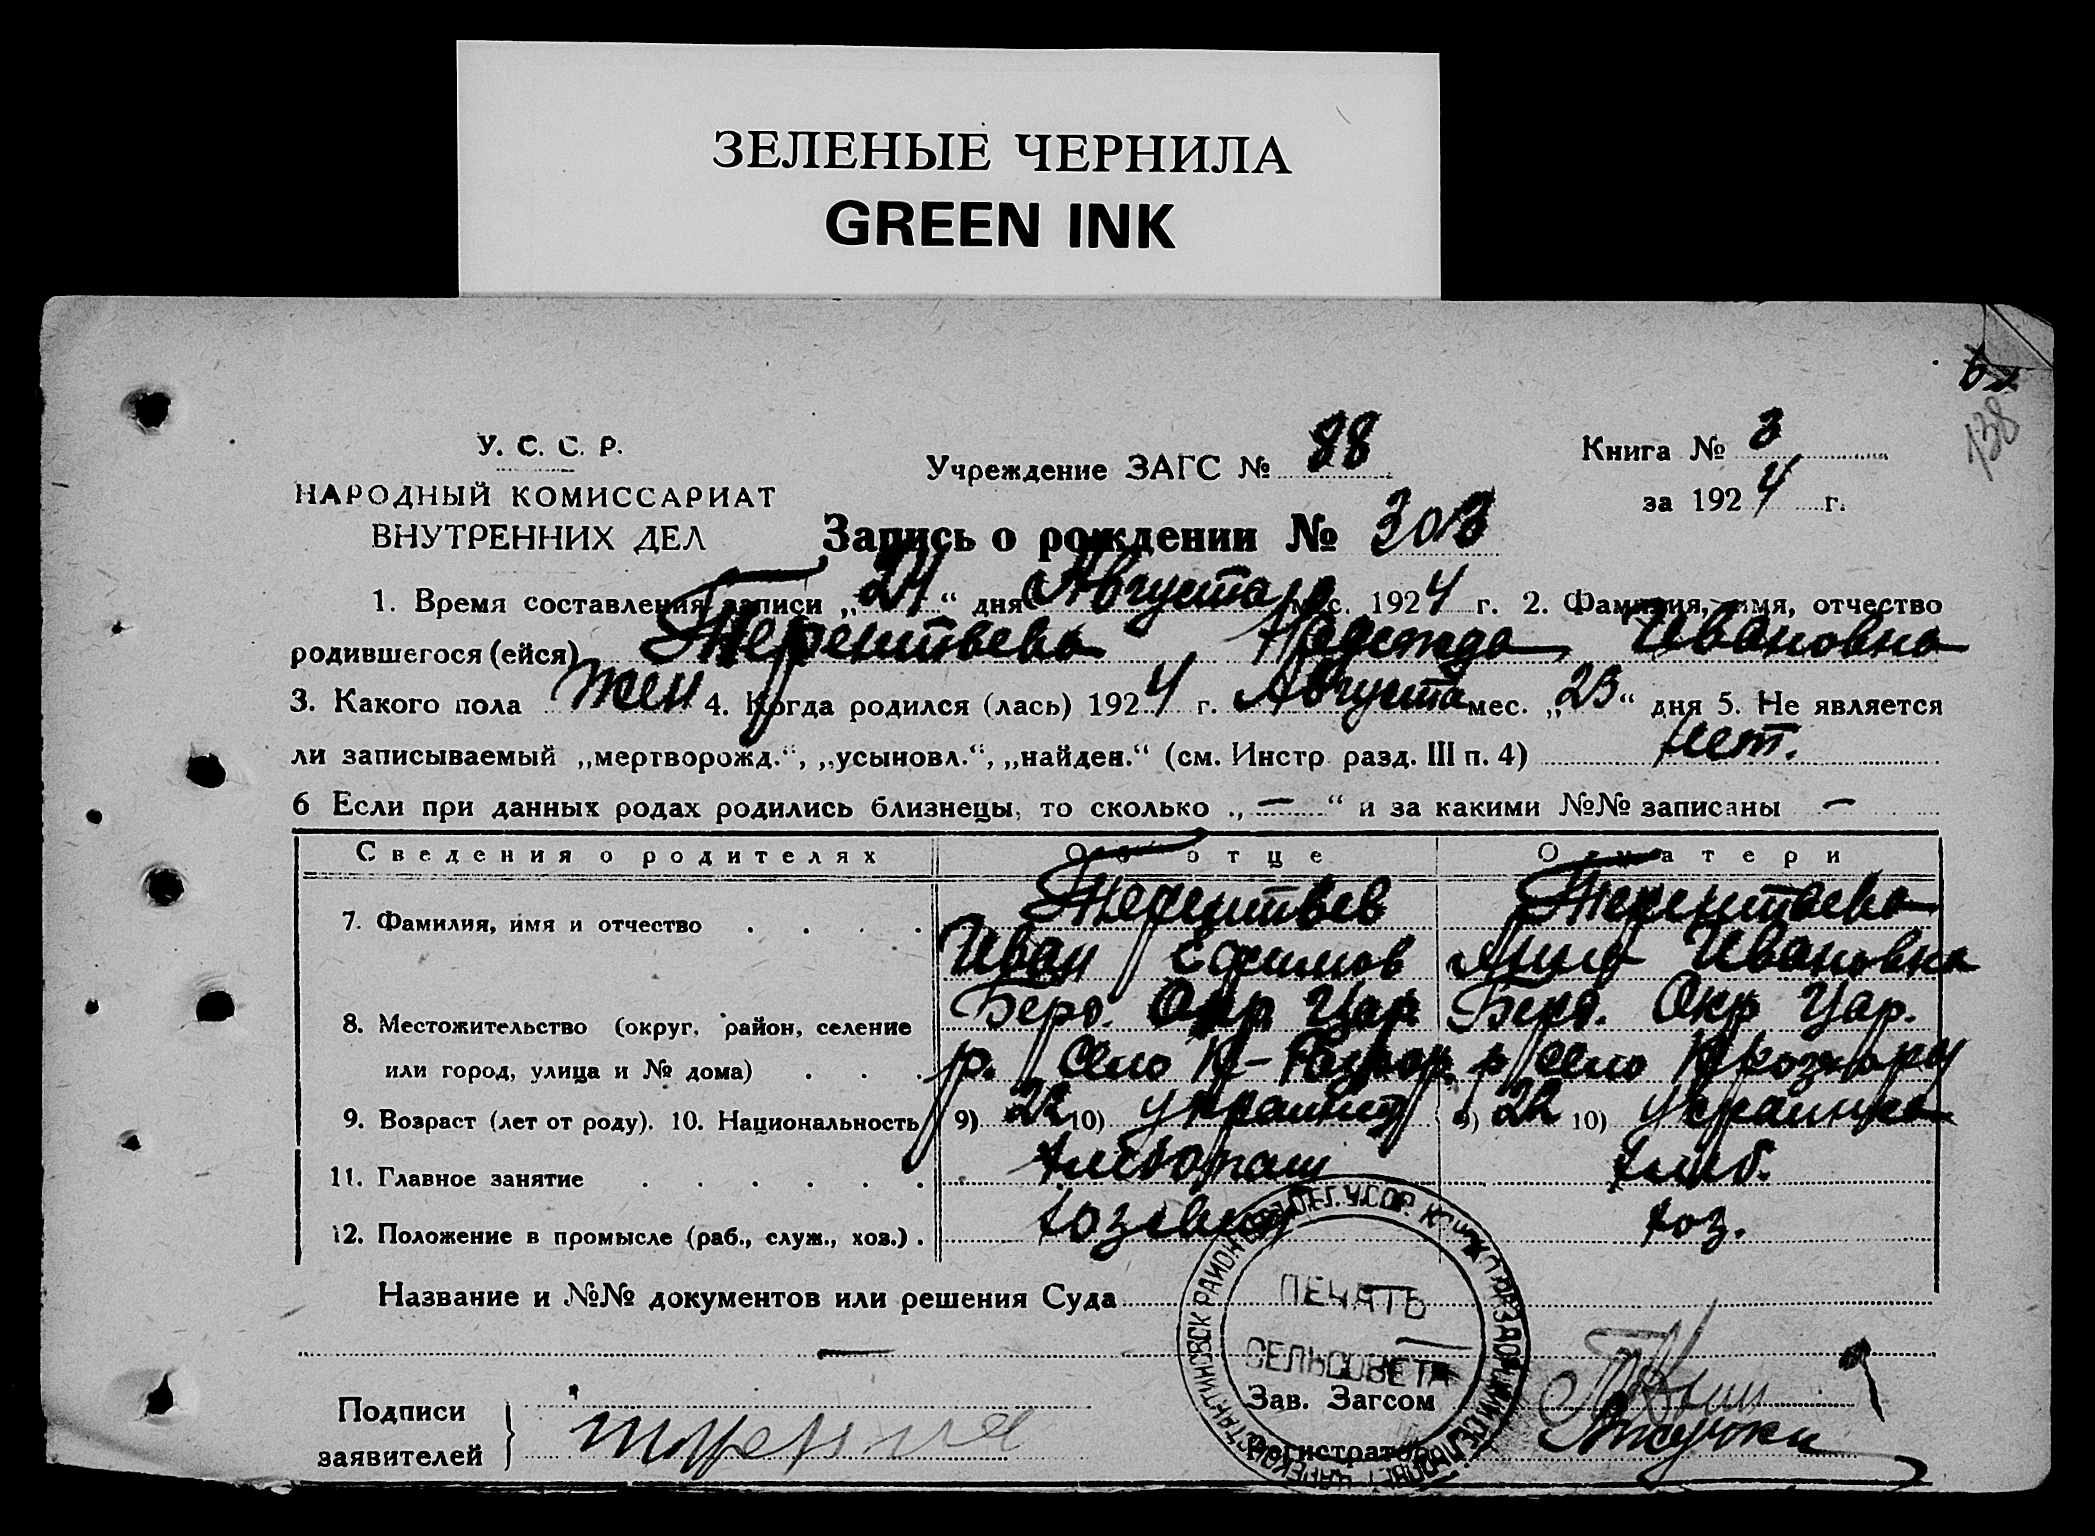 ЗЕЛЕНЫЕ ЧЕРНИЛА
GREEN INK
138
У. С. С. Р.
НАРОДНЫЙ КОМИССАРИАТ
ВНУТРЕННИХ ДЕЛ
Учреждение ЗАГС № 88
Книга № 3
за 1924 г.
Запись о рождении № 303
1. Время составления записи „24“ дня Августа мес. 1924 г. 2. Фамилия, имя, отчество
родившегося (ейся) Терентьева Надежда Ивановна
3. Какого пола жен 4. Когда родился (лась) 1924 г. Августа мес. „23“ дня 5. Не является
ли записываемый „мертворожд.“, „усыновл.“, „найден.“ (см. Инстр. разд. III п. 4) нет.
6 Если при данных родах родились близнецы, то сколько „—“ и за какими №№ записаны —
Сведения о родителях Об отце О матери
7. Фамилия, имя и отчество Терентьев Терентьева
Иван Ефимов Анна Ивановна
8. Местожительство (округ, район, селение Берд. Окр Цар Берд. Окр Цар.
или город, улица и № дома) р. село К- р село
9. Возраст (лет от роду). 10. Национальность 9) 22 10) украинец 9) 22 10) украинка
11. Главное занятие хлебопаш хлеб.
12. Положение в промысле (раб., служ., хоз.) хозяин хоз.
Название и №№ документов или решения Суда
—
ПЕЧАТЬ
СЕЛЬСОВЕТА
Подписи
заявителей
Зав. Загсом
Регистратор